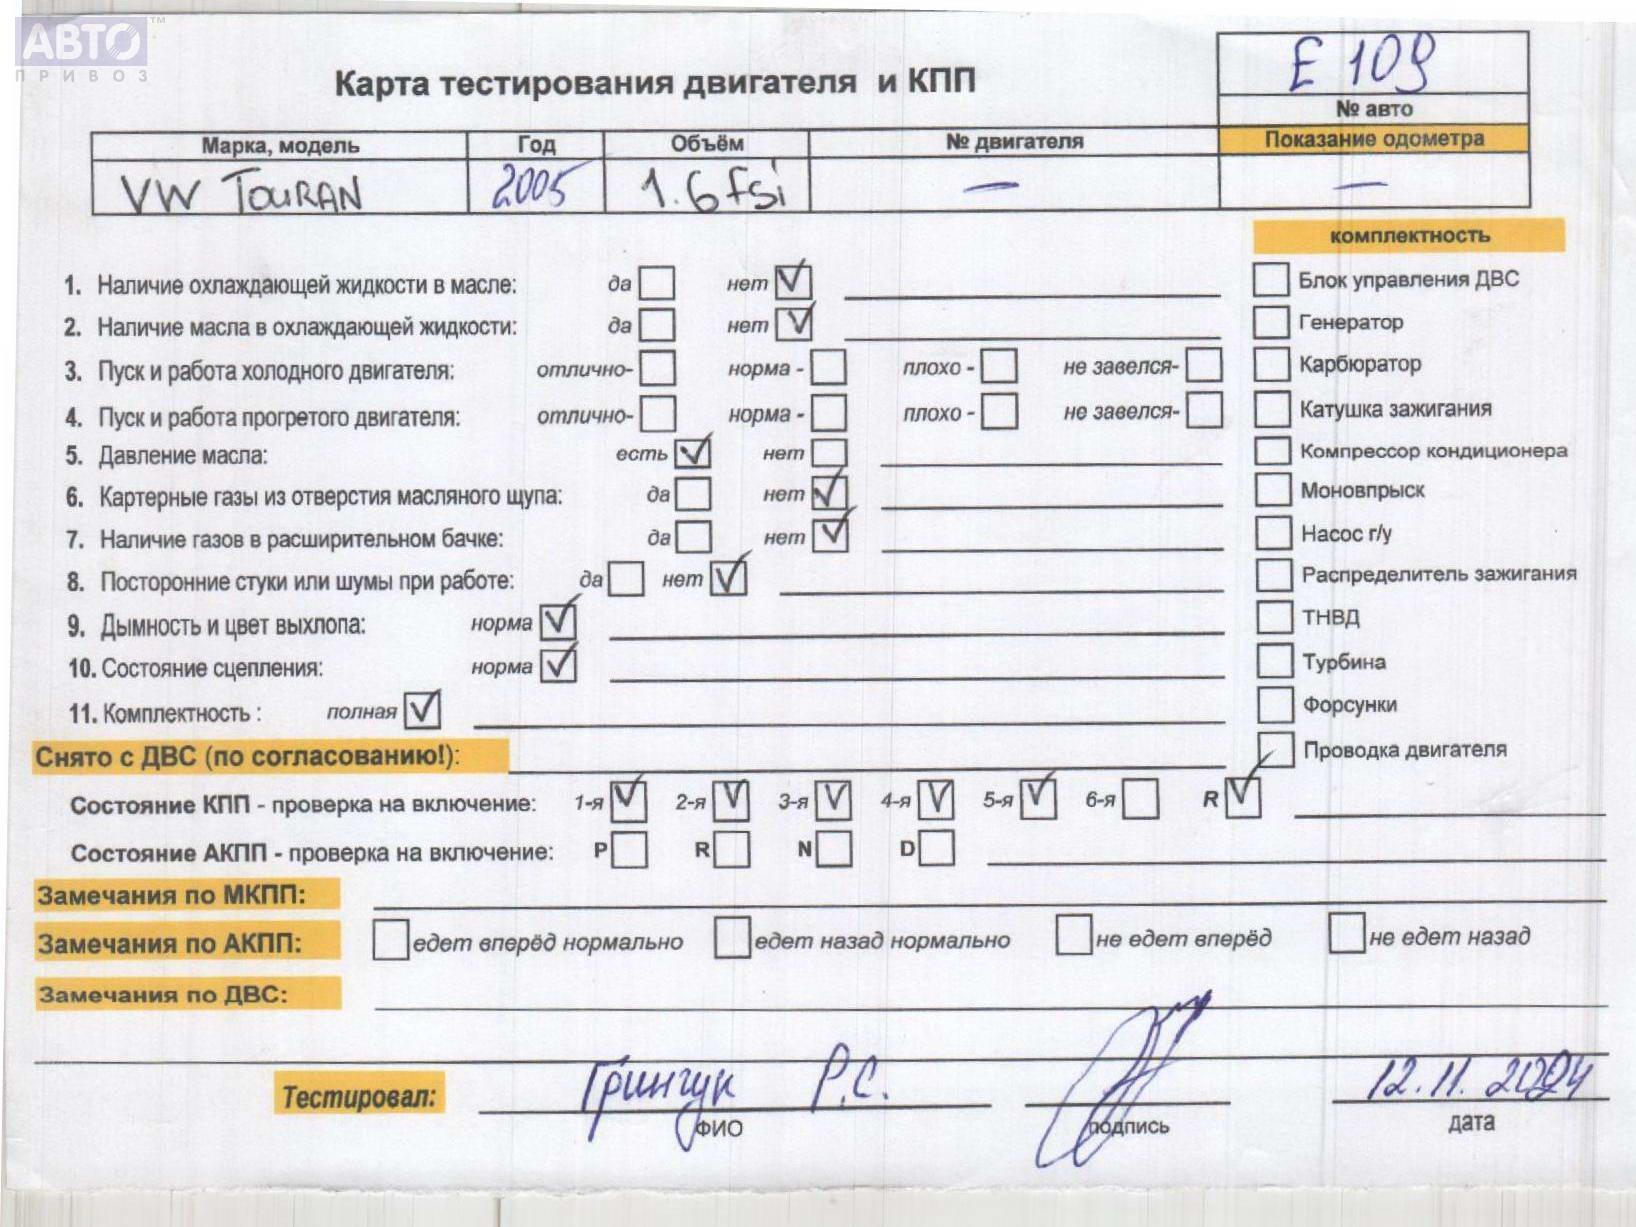 АВТО™
ПРИВОЗ
Карта тестирования двигателя и КПП
E 109
№ авто
Марка, модель Год Объём № двигателя Показание одометра
VW TOURAN 2005 1.6 fsi — —
комплектность
1. Наличие охлаждающей жидкости в масле: да нет Блок управления ДВС
2. Наличие масла в охлаждающей жидкости: да нет Генератор
3. Пуск и работа холодного двигателя: отлично- норма - плохо - не завелся- Карбюратор
4. Пуск и работа прогретого двигателя: отлично- норма - плохо - не завелся- Катушка зажигания
5. Давление масла: есть нет Компрессор кондиционера
6. Картерные газы из отверстия масляного щупа: да нет Моновпрыск
7. Наличие газов в расширительном бачке: да нет Насос г/у
8. Посторонние стуки или шумы при работе: да нет Распределитель зажигания
9. Дымность и цвет выхлопа: норма ТНВД
10. Состояние сцепления: норма Турбина
11. Комплектность : полная Форсунки
Снято с ДВС (по согласованию!): Проводка двигателя
Состояние КПП - проверка на включение: 1-я 2-я 3-я 4-я 5-я 6-я R
Состояние АКПП - проверка на включение: P R N D
Замечания по МКПП:
Замечания по АКПП: едет вперёд нормально едет назад нормально не едет вперёд не едет назад
Замечания по ДВС:
Тестировал: Гринчук Р.С. 12.11.2024
ФИО подпись дата